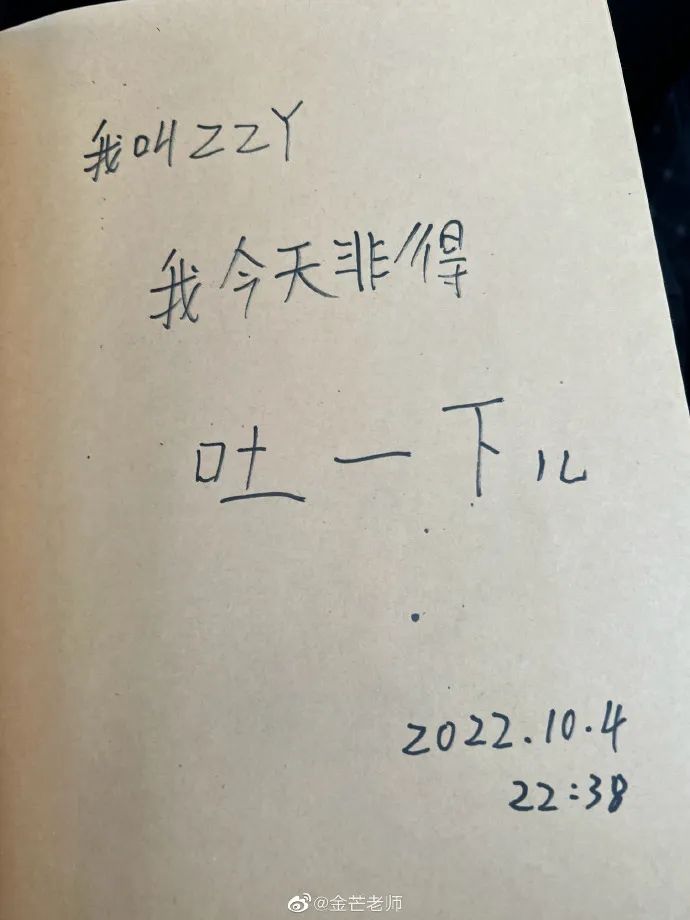 我叫ZZY
我今天非得
吐一下儿
2022.10.4
22:38
@金芒老师